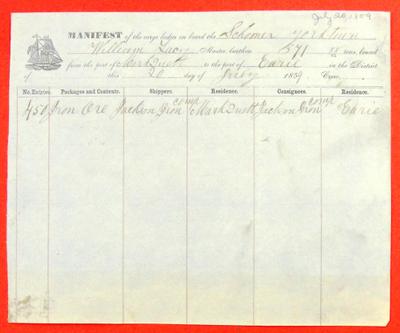 July 20, 1859
MANIFEST of the cargo laden on board the Schoner Yorktown
William Lacy Master, burthen 571 tons, bound
from the port of Markquett to the port of Earie in the District
of this 20 day of July 1859 Crew,
No. Entries. Packages and Contents. Shippers. Residence. Consignees. Residence.
450 Iron Ore Jackson Iron comp Markquett Jackson Iron comp Earie